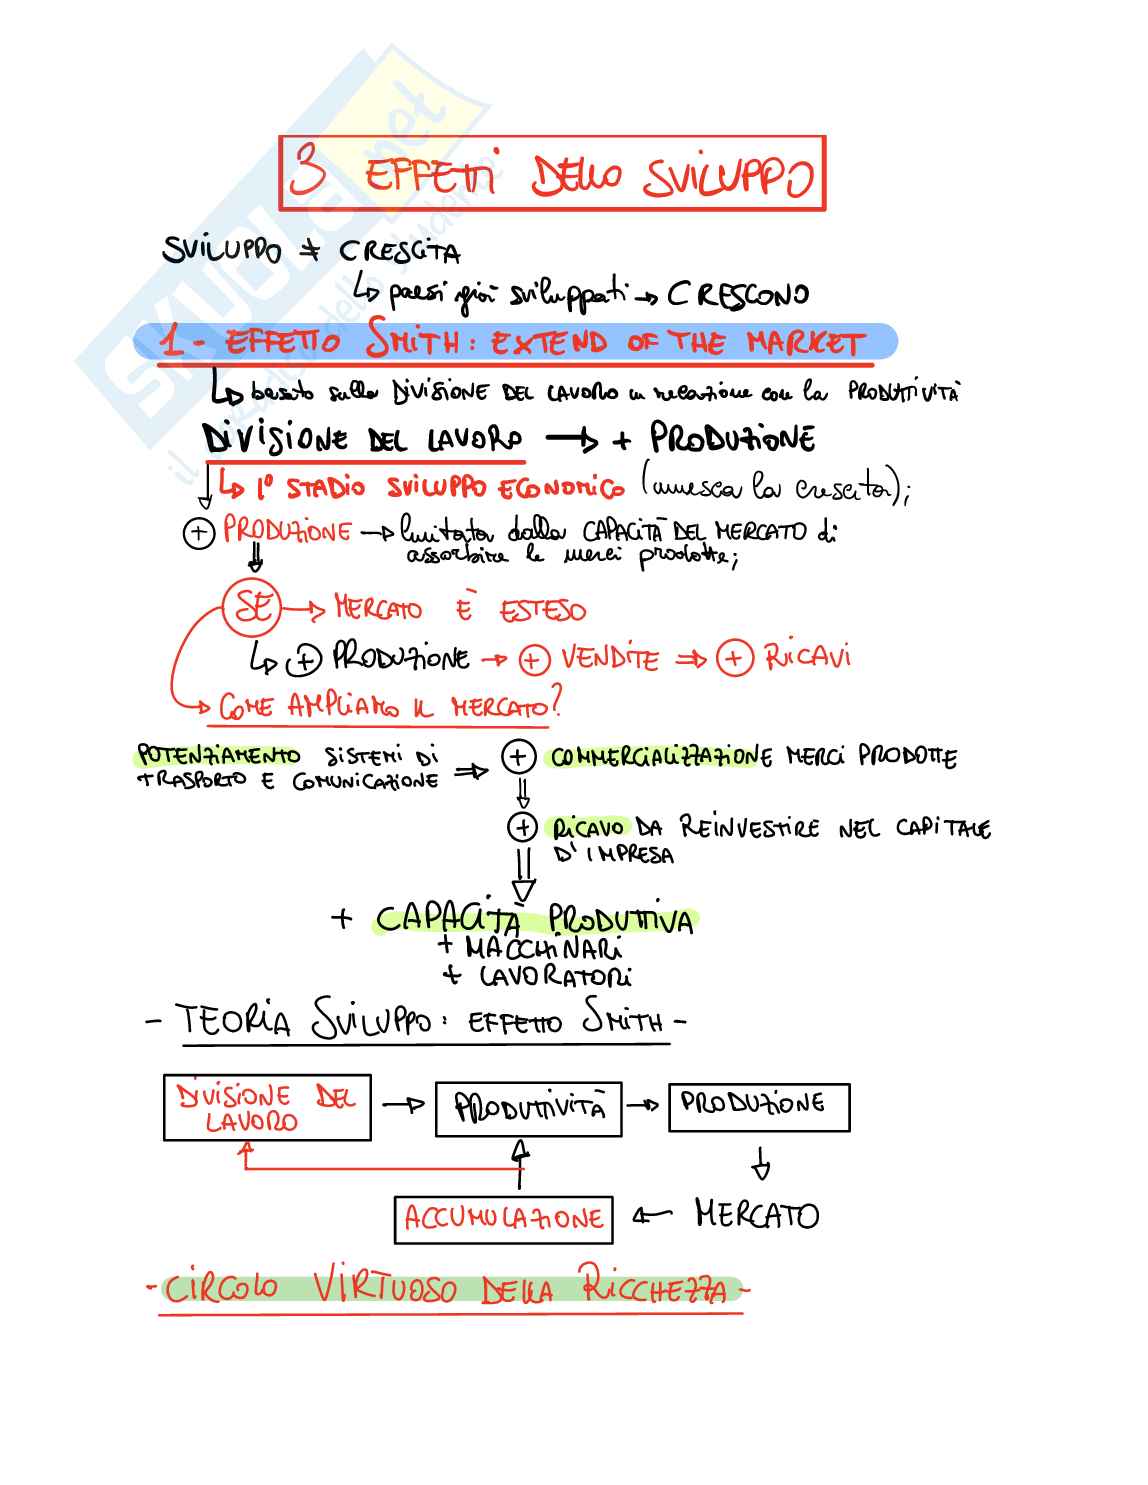 3 EFFETTI DELLO SVILUPPO
SVILUPPO ≠ CRESCITA
↳ paesi già sviluppati → CRESCONO
1 - EFFETTO SMITH: EXTEND OF THE MARKET
↳ basato sulla DIVISIONE DEL LAVORO in relazione con la PRODUTTIVITÀ
DIVISIONE DEL LAVORO → + PRODUZIONE
↳ 1° STADIO SVILUPPO ECONOMICO (innesca la crescita);
+ PRODUZIONE → limitata dalla CAPACITÀ DEL MERCATO di
assorbire le merci prodotte;
SE → MERCATO È ESTESO
↳ + PRODUZIONE → + VENDITE ⇒ + RICAVI
→ COME AMPLIAMO IL MERCATO?
POTENZIAMENTO SISTEMI DI
TRASPORTO E COMUNICAZIONE ⇒ + COMMERCIALIZZAZIONE MERCI PRODOTTE
+ RICAVO DA REINVESTIRE NEL CAPITALE
D'IMPRESA
+ CAPACITÀ PRODUTTIVA
+ MACCHINARI
+ LAVORATORI
- TEORIA SVILUPPO: EFFETTO SMITH -
DIVISIONE DEL
LAVORO → PRODUTTIVITÀ → PRODUZIONE
ACCUMULAZIONE ← MERCATO
- CIRCOLO VIRTUOSO DELLA RICCHEZZA -
SKUOLA.net